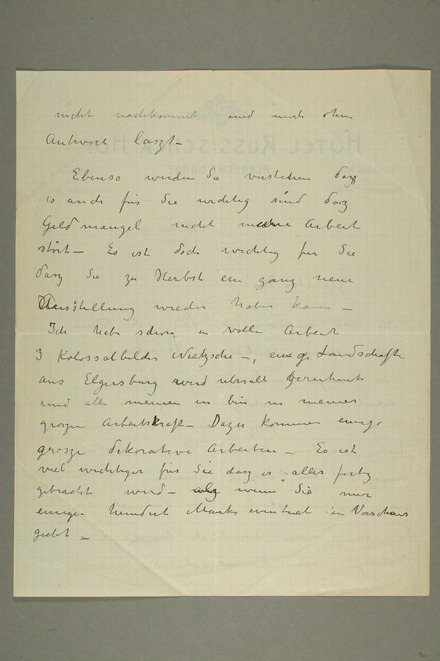 nicht nachkommt und mich ohne
Antwort laszt –
Ebenso werden Sie verstehen dasz
es auch für Sie wichtig sind dasz
Geldmangel nicht meine Arbeit
stört – Es ist doch wichtig für Sie
dasz Sie zu Herbst ein ganz neue
Ausstellung wieder haben kann –
Ich habe schon in voller Arbeit
3 Kolossalbilder Nietzsche –, einige Landschafte
aus Elgersburg wird uberall
und alle meinen ich bin in meiner
groszen Arbeitskraft – Dazu kommen einige
grosze dekorative Arbeiten – Es ist
viel wichtiger für Sie dasz es alles fertig
gebracht wird – als wenn Sie nur
einige hundert Marks eventuel in Vorschuss
giebt –
HOTEL RUSSISCHER HOF